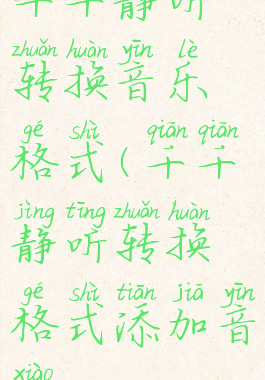 千千静听
zhuǎn huàn yīn lè
转换音乐
gé shì qiān qiān
格式(千千
jìng tīng zhuǎn huàn
静听转换
gé shì tiān jiā yīn
格式添加音
xiào